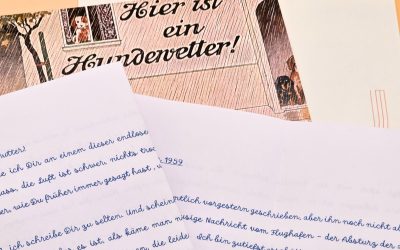 Hier ist
ein
Hundewetter!
utter!
e ich Dir an einem dieser endlose
ass, die Luft ist schwer, nichts troc
er, wie Du früher immer gesagt hast
ich schreibe Dir zu selten. Und schein
es ist, als käme man
1959
ntlich vorgestern geschrieben, aber ihn noch nicht a
ige Nachricht vom Flughafen - der Absturz der
die leide
Ich bin zutiefst